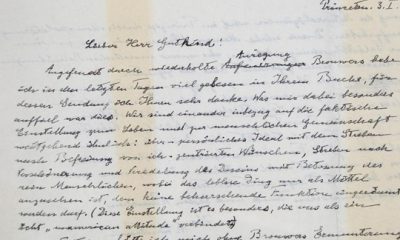 Princeton. 3. I.
Lieber Herr Gutkind!
Anregung
Angefeuert durch wiederholte Brouwers habe
ich in den letzten Tagen viel gelesen in Ihrem Buche, für
dessen Sendung ich Ihnen sehr danke. Was mir dabei besonders
auffiel war dies. Wir sind einander inbezug auf die faktische
Einstellung zum Leben und zur menschlichen Gemeinschaft
weitgehend ähnlich: Ihr persönliches Ideal mit dem Streben
nach Befreiung von ich-zentrierten Wünschen, Streben nach
Verschönerung und Veredelung des Daseins mit Betonung des
rein Menschlichen, wobei das leblose Ding nur als Mittel
anzusehen ist, dem keine beherrschende Funktion eingeräumt
werden darf. (Diese Einstellung ist es besonders, die uns als ein
echt „unamerican attitude" verbindet)
ich mich ohne Brouwers Ermunterung